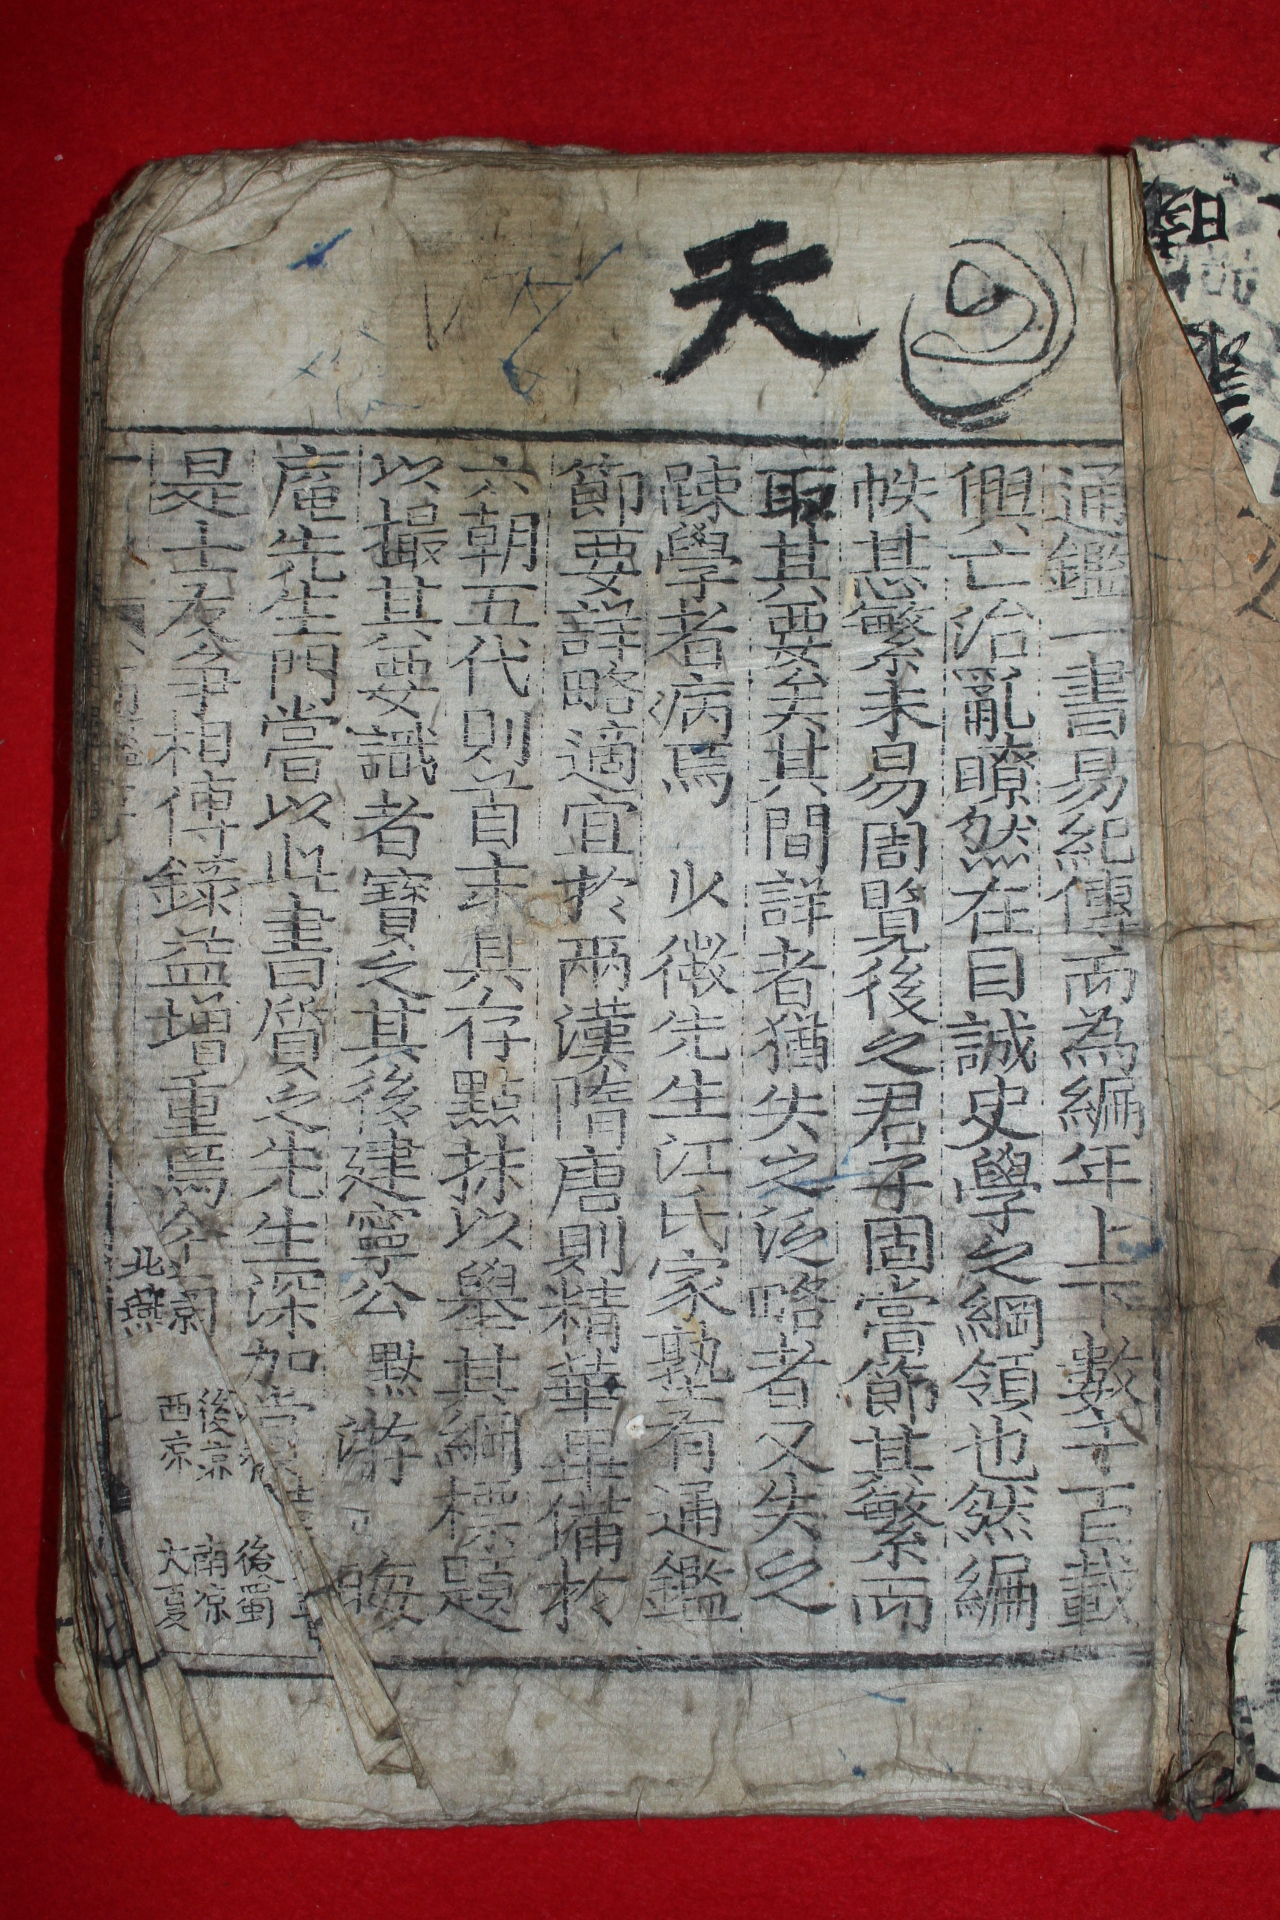 天
通鑑一書易紀傳而為編年上下數千百載
興亡治亂瞭然在目誠史學之綱領也然編
帙甚繁未易周覽後之君子固嘗節其繁而
取其要矣其間詳者猶失之泛略者又失之
踈學者病焉 少微先生江氏家塾有通鑑
節要詳略適宜於兩漢隋唐則精華畢備於
六朝五代則首末具存點抹以舉其綱標題
以撮其要識者寶之其後建寧公默游 晦
庵先生門嘗以此書質之先生深加
是士友爭相傳錄益增重焉今
北燕
後涼
西涼
後蜀
南涼
大夏